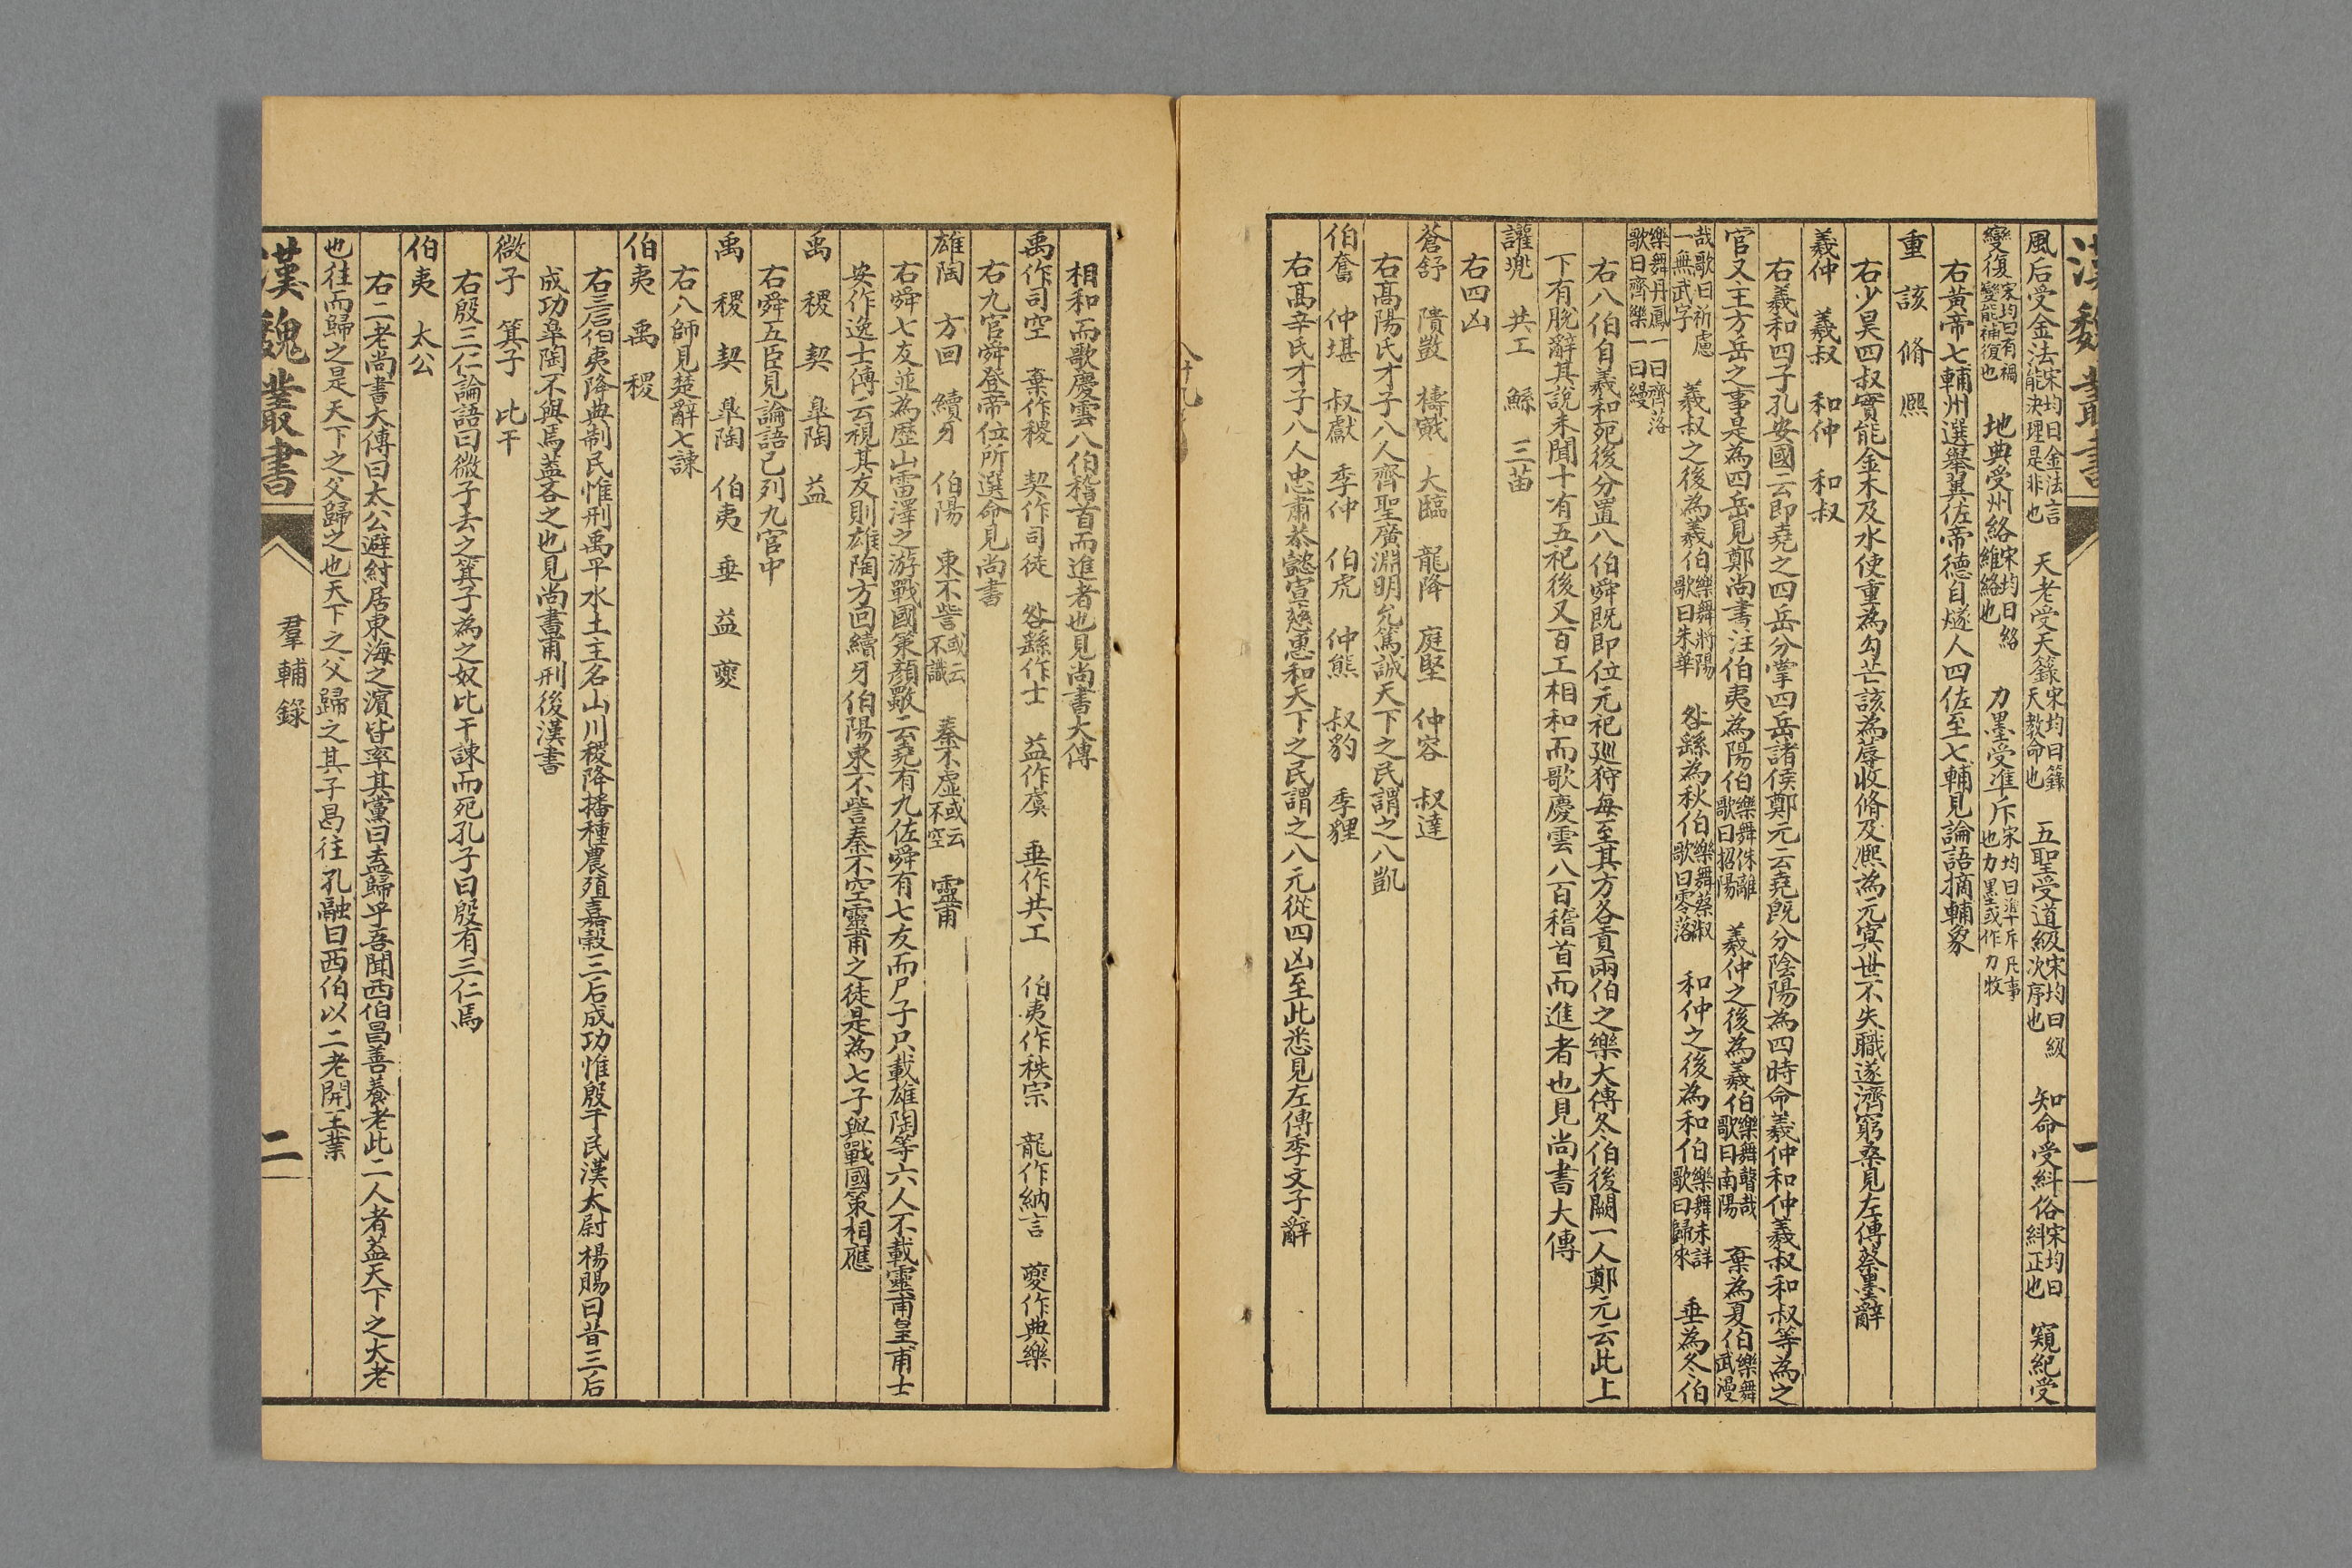 漢魏叢書
一
風后受金法宋均曰金法言能決理是非也　天老受天籙宋均曰籙天教命也　五聖受道級宋均曰級次序也　知命受糾俗宋均曰糾正也　窺紀受
變復宋均曰有禍變能補復也　地典受州絡宋均曰絡維絡也　力墨受準斥宋均曰準斥凡事也力墨或作力牧
右黃帝七輔州選舉翼佐帝德自燧人四佐至七輔見論語摘輔象
重　該　脩　熈
右少昊四叔實能金木及水使重為勾芒該為蓐收脩及熈為元冥世不失職遂濟窮桑見左傳蔡墨辭
羲仲　羲叔　和仲　和叔
右羲和四子孔安國云即堯之四岳分掌四岳諸侯鄭元云堯旣分陰陽為四時命羲仲和仲羲叔和叔等為之
官又主方岳之事是為四岳見鄭尚書注伯夷為陽伯樂舞侏離歌曰招陽　羲仲之後為羲伯樂舞鼚哉歌曰南陽　棄為夏伯樂舞武漫
哉歌曰祈慮一無武字　羲叔之後為羲伯樂舞將陽歌曰朱華　咎繇為秋伯樂舞蔡俶歌曰零落　和仲之後為和伯樂舞未詳歌曰歸來　垂為冬伯
樂舞丹鳳一曰齊落歌曰齊樂一曰縵
右八伯自羲和死後分置八伯舜旣即位元祀廵狩每至其方各貢兩伯之樂大傳冬伯後闕一人鄭元云此上
下有脫辭其說未聞十有五祀後又百工相和而歌慶雲八百稽首而進者也見尚書大傳
讙兜　共工　鯀　三苗
右四凶
蒼舒　隤敱　檮戭　大臨　龍降　庭堅　仲容　叔達
右高陽氏才子八人齊聖廣淵明允篤誠天下之民謂之八凱
伯奮　仲堪　叔獻　季仲　伯虎　仲熊　叔豹　季貍
右高辛氏才子八人忠肅恭懿宣慈惠和天下之民謂之八元從四凶至此悉見左傳季文子辭
相和而歌慶雲八伯稽首而進者也見尚書大傳
禹作司空　棄作稷　契作司徒　咎繇作士　益作虞　垂作共工　伯夷作秩宗　龍作納言　夔作典樂
右九官舜登帝位所選命見尚書
雄陶　方回　續牙　伯陽　東不訾或云不識　秦不虛或云不空　靈甫
右舜七友並為歷山雷澤之游戰國策顏歜云堯有九佐舜有七友而尸子只載雄陶等六人不載靈甫皇甫士
安作逸士傳云視其友則雄陶方回續牙伯陽東不訾秦不空靈甫之徒是為七子與戰國策相應
禹　稷　契　臯陶　益
右舜五臣見論語已列九官中
禹　稷　契　臯陶　伯夷　垂　益　夔
右八師見楚辭七諫
伯夷　禹　稷
右三后伯夷降典制民惟刑禹平水土主名山川稷降播種農殖嘉穀三后成功惟殷于民漢太尉楊賜曰昔三后
成功臯陶不與焉蓋吝之也見尚書甫刑後漢書
微子　箕子　比干
右殷三仁論語曰微子去之箕子為之奴比干諫而死孔子曰殷有三仁焉
伯夷　太公
右二老尚書大傳曰太公避紂居東海之濱皆率其黨曰盍歸乎吾聞西伯昌善養老此二人者蓋天下之大老
也往而歸之是天下之父歸之也天下之父歸之其子曷往孔融曰西伯以二老開王業
漢魏叢書
羣輔錄
二